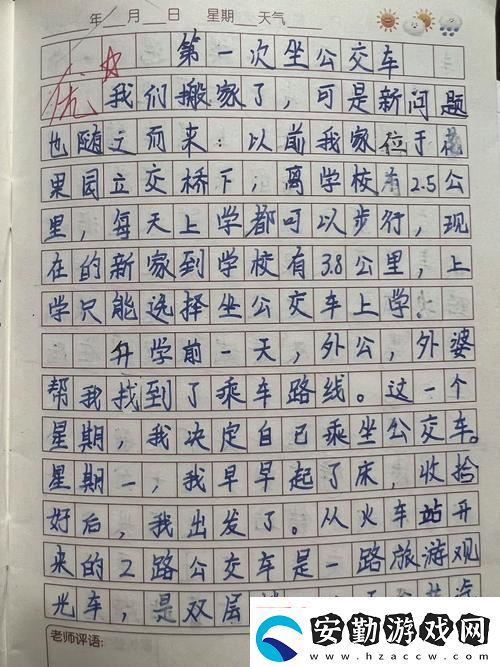 年 月 日 星期 天气
第一次坐公交车
优
我们搬家了，可是新问题
也随之而来：以前我家位于花
果园立交桥下，离学校有2.5公
里，每天上学都可以步行，现
在的新家到学校有3.8公里，上
学只能选择坐公交车上学。
升学前一天，外公，外婆
帮我找到了乘车路线。这一个
星期，我决定自己乘坐公交车。
星期一，我早早起了床，收拾
好后，我出发了。从火车站开
来的2路公交车是一路旅游观
光车，是双层
老师评语：
安勤游戏网
www.hzaccw.com